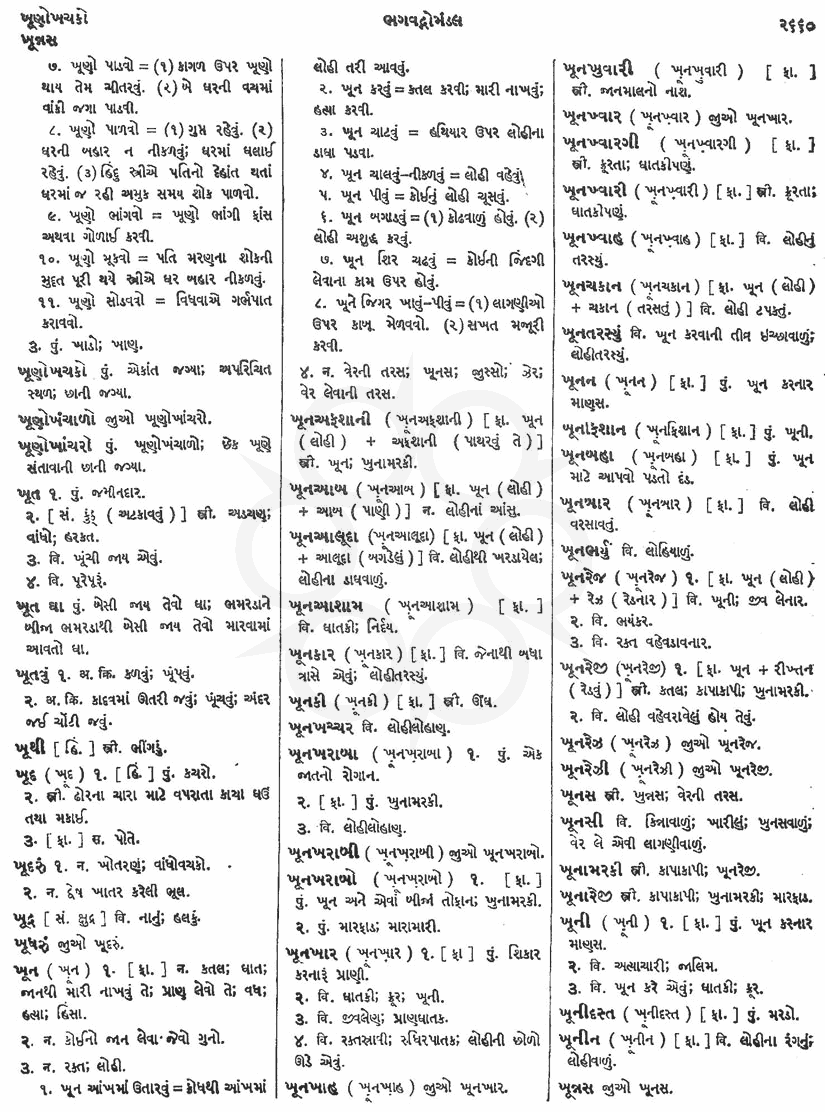 ખૂણોખચકો
ભગવદ્ગોમંડલ
૨૬૬૦
ખૂન્નસ
૭. ખૂણો પાડવો = (૧) કાગળ ઉપર ખૂણો
થાય તેમ ચીતરવું. (૨) બે ઘરની વચમાં
વાંકી જગા પાડવી.
૮. ખૂણો પાળવો = (૧) ગુપ્ત રહેવું. (૨)
ઘરની બહાર ન નીકળવું; ઘરમાં ઘલાઈ
રહેવું. (૩) હિંદુ સ્ત્રીએ પતિનો દેહાંત થતાં
ઘરમાં જ રહી અમુક સમય શોક પાળવો.
૯. ખૂણો ભાંગવો = ખૂણો ભાંગી ફાંસ
અથવા ગોળાઈ કરવી.
૧૦. ખૂણો મૂકવો = પતિ મરણના શોકની
મુદ્દત પૂરી થયે સ્ત્રીએ ઘર બહાર નીકળવું.
૧૧. ખૂણો સોડવવો = વિધવાએ ગર્ભપાત
કરાવવો.
૩. પું. ખાડો; ખાણ.
ખૂણોખચકો પું. એકાંત જગ્યા; અપરિચિત
સ્થળ; છાની જગ્યા.
ખૂણોખંચાળો જુઓ ખૂણોખાંચરો.
ખૂણોખાંચરો પું. ખૂણોખંચાળો; છેક ખૂણે
સંતાવાની છાની જગ્યા.
ખૂત ૧. પું. જમીનદાર.
૨. [ સં. કુંઠ્ ( અટકાવવું ) ] સ્ત્રી. અડચણ;
વાંધો; હરકત.
૩. વિ. ખૂંચી જાય એવું.
૪. વિ. પૂરેપૂરું.
ખૂત ઘા પું. બેસી જાય તેવો ઘા; ભમરડાને
બીજા ભમરડાથી બેસી જાય તેવો મારવામાં
આવતો ઘા.
ખૂતવું ૧. અ. ક્રિ. કળવું; ખૂંપવું.
૨. અ. ક્રિ. કાદવમાં ઊતરી જવું; ખૂંચવું; અંદર
જઈ ચોંટી જવું.
ખૂથી [ હિં. ] સ્ત્રી. ભીંગડું.
ખૂદ ( ખૂદ ) ૧. [ હિં. ] પું. કચરો.
૨. સ્ત્રી. ઢોરના ચારા માટે વપરાતા કાચા ઘઉં
તથા મકાઈ.
૩. [ ફા. ] સ. પોતે.
ખૂદરું ૧. ન. ખોતરણું; વાંધોવચકો.
૨. ન. દ્વેષ ખાતર કરેલી ભૂલ.
ખૂદ્ર [ સં. ક્ષુદ્ર ] વિ. નાનું; હલકું.
ખૂધરું જુઓ ખૂદરું.
ખૂન ( ખૂન ) ૧. [ ફા. ] ન. કતલ; ઘાત;
જાનથી મારી નાખવું તે; પ્રાણ લેવો તે; વધ;
હત્યા; હિંસા.
૨. ન. કોઈનો જાન લેવા જેવો ગુનો.
૩. ન. રક્ત; લોહી.
૧. ખૂન આંખમાં ઉતારવું = ક્રોધથી આંખમાં
લોહી તરી આવવું.
૨. ખૂન કરવું = કતલ કરવી; મારી નાખવું;
હત્યા કરવી.
૩. ખૂન ચાટવું = હથિયાર ઉપર લોહીના
ડાઘા પડવા.
૪. ખૂન ચાલવું–નીકળવું = લોહી વહેવું.
૫. ખૂન પીવું = કોઈનું લોહી ચૂસવું.
૬. ખૂન બગાડવું = (૧) કોઢવાળું હોવું. (૨)
લોહી અશુદ્ધ કરવું.
૭. ખૂન શિર ચઢવું = કોઈની જિંદગી
લેવાના કામ ઉપર હોવું.
૮. ખૂને જિગર ખાવું–પીવું = (૧) લાગણીઓ
ઉપર કાબૂ મેળવવો. (૨) સખત મજૂરી
કરવી.
૪. ન. વેરની તરસ; ખૂનસ; જુસ્સો; ઝેર;
વેર લેવાની તરસ.
ખૂનઅફશાની ( ખૂનઅફશાની ) [ ફા. ખૂન
( લોહી ) + અફશાની ( પાથરવું તે ) ]
સ્ત્રી. ખૂન; ખુનામરકી.
ખૂનઆબ ( ખૂનઆબ ) [ ફા. ખૂન ( લોહી )
+ આબ ( પાણી ) ] ન. લોહીનાં આંસુ.
ખૂનઆલૂદા ( ખૂનઆલૂદા ) [ ફા. ખૂન ( લોહી )
+ આલૂદા ( બગડેલું ) ] વિ. લોહીથી ખરડાયેલ;
લોહીના ડાઘવાળું.
ખૂનઆશામ ( ખૂનઆશામ ) [ ફા. ]
વિ. ઘાતકી; નિર્દય.
ખૂનકાર ( ખૂનકાર ) [ ફા. ] વિ. જેનાથી બધા
ત્રાસે એવું; લોહીતરસ્યું.
ખૂનકી ( ખૂનકી ) [ ફા. ] સ્ત્રી. ઊંઘ.
ખૂનખચ્ચર વિ. લોહીલોહાણ.
ખૂનખરાબા ( ખૂનખરાબા ) ૧. પું. એક
જાતનો રોગાન.
૨. [ ફા. ] પું. ખુનામરકી.
૩. વિ. લોહીલોહાણ.
ખૂનખરાબી ( ખૂનખરાબી ) જુઓ ખૂનખરાબો.
ખૂનખરાબો ( ખૂનખરાબો ) ૧. [ ફા. ]
પું. ખૂન અને એવાં બીજાં તોફાન; ખુનામરકી.
૨. પું. મારફાડ; મારામારી.
ખૂનખાર ( ખૂનખાર ) ૧. [ ફા ] પું. શિકાર
કરનારું પ્રાણી.
૨. વિ. ઘાતકી; ક્રૂર; ખૂની.
૩. વિ. જીવલેણ; પ્રાણઘાતક.
૪. વિ. રક્તસ્રાવી; રુધિરપાતક; લોહીની છોળો
ઊડે એવું.
ખૂનખાહ ( ખૂનખાહ ) જુઓ ખૂનખાર.
ખૂનખુવારી ( ખૂનખુવારી ) [ ફા. ]
સ્ત્રી. જાનમાલનો નાશ.
ખૂનખ્વાર ( ખૂનખ્વાર ) જુઓ ખૂનખાર.
ખૂનખ્વારગી ( ખૂનખ્વારગી ) [ ફા. ]
સ્ત્રી. ક્રૂરતા; ઘાતકીપણું.
ખૂનખ્વારી ( ખૂનખ્વારી ) [ ફા. ] સ્ત્રી. ક્રૂરતા;
ઘાતકીપણું.
ખૂનખ્વાહ ( ખૂનખ્વાહ ) [ ફા. ] વિ. લોહીનું
તરસ્યું.
ખૂનચકાન ( ખૂનચકાન ) [ ફા. ખૂન ( લોહી )
+ ચકાન ( તરસતું ) ] વિ. લોહી ટપકતું.
ખૂનતરસ્યું વિ. ખૂન કરવાની તીવ્ર ઇચ્છાવાળું;
લોહીતરસ્યું.
ખૂનન ( ખૂનન ) [ ફા. ] પું. ખૂન કરનાર
માણસ.
ખૂનફિશાન ( ખૂનફિશાન ) [ ફા. ] પું. ખૂની.
ખૂનબહા ( ખૂનબહા ) [ ફા. ] પું. ખૂન
માટે આપવો પડતો દંડ.
ખૂનબાર ( ખૂનબાર ) [ ફા. ] વિ. લોહી
વરસાવતું.
ખૂનભર્યું વિ. લોહિયાળું.
ખૂનરેજ ( ખૂનરેજ ) ૧. [ ફા. ખૂન ( લોહી )
+ રેઝ ( રેડનાર ) ] વિ. ખૂની; જીવ લેનાર.
૨. વિ. ભયંકર.
૩. વિ. રક્ત વહેવડાવનાર.
ખૂનરેજી (ખૂનરેજી) ૧. [ ફા. ખૂન + રીખ્તન
( રેડવું ) ] સ્ત્રી. કતલ; કાપાકાપી; ખુનામરકી.
૨. વિ. લોહી વહેવરાવેલું હોય તેવું.
ખૂનરેઝ ( ખૂનરેઝ ) જુઓ ખૂનરેજ.
ખૂનરેઝી ( ખૂનરેઝી ) જુઓ ખૂનરેજી.
ખૂનસ સ્ત્રી. ખુન્નસ; વેરની તરસ.
ખૂનસી વિ. કિન્નાવાળું; ખારીલું; ખુનસવાળું;
વેર લે એવી લાગણીવાળું.
ખૂનામરકી સ્ત્રી. કાપાકાપી; ખૂનરેજી.
ખૂનારેજી સ્ત્રી. કાપાકાપી; ખુનામરકી; મારફાડ.
ખૂની ( ખૂની ) ૧. [ ફા. ] પું. ખૂન કરનાર
માણસ.
૨. વિ. અત્યાચારી; જાલિમ.
૩. વિ. ખૂન કરે એવું; ઘાતકી; ક્રૂર.
ખૂનીદસ્ત ( ખૂનીદસ્ત ) [ ફા. ] પું. મરડો.
ખૂનીન ( ખૂનીન ) [ ફા. ] વિ. લોહીના રંગનું;
લોહીવાળું.
ખૂન્નસ જુઓ ખૂનસ.